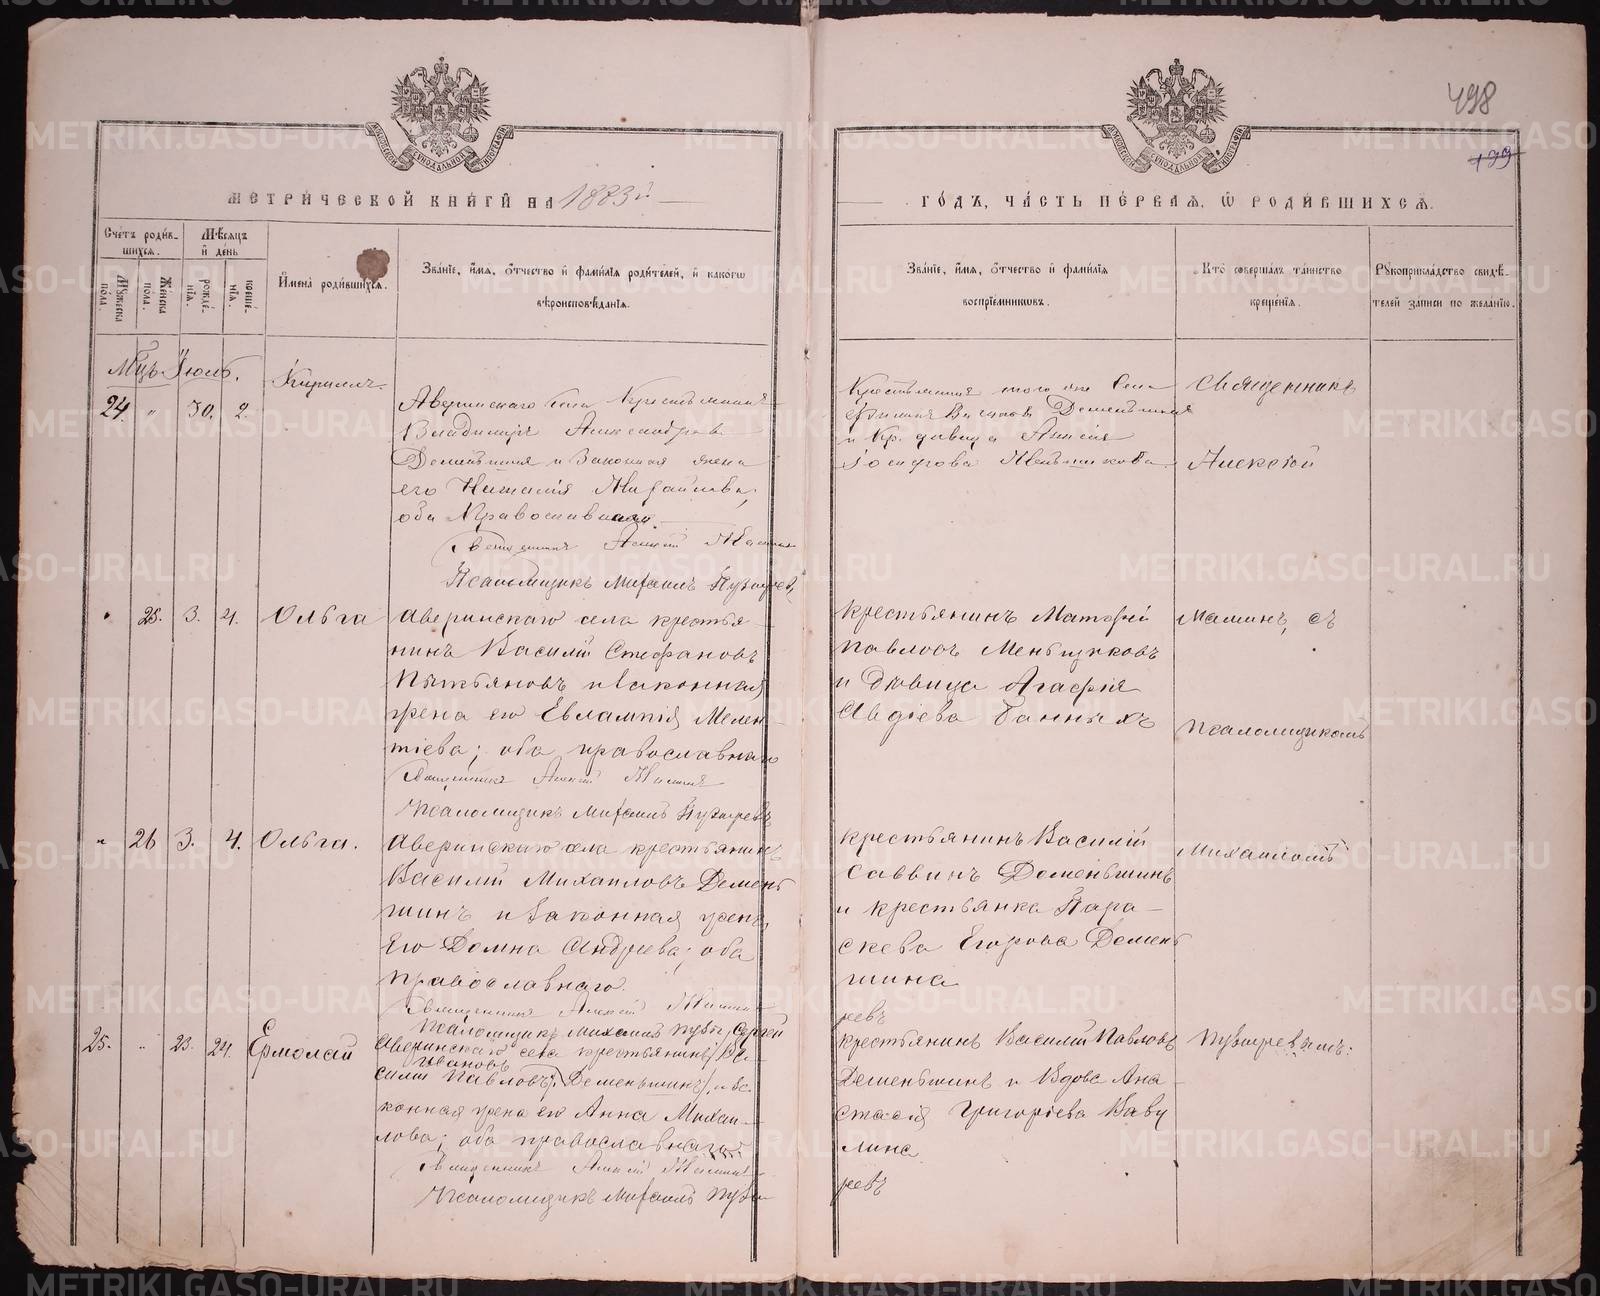 498
199
МЕТРИЧЕСКОЙ КНИГИ НА 1883й
ГОДЪ, ЧАСТЬ ПЕРВАЯ, Ѿ РОДИВШИХСЯ.
Счетъ родившихся.
Мужеска пола.
Женска пола.
Мѣсяцъ и день
рожденія.
крещенія.
Имена родившихся.
Званіе, имя, отчество и фамилія родителей, и какогѡ
вѣроисповѣданія.
Званіе, имя, отчество и фамилія
воспріемниковъ.
Кто совершалъ таинство
крещенія.
Рукоприкладство свидѣтелей записи по желанію.
Мцъ Іюль.
24. " 30. 2. Кириллъ.
Аверинскаго села Крестьянинъ
Владимиръ Александровъ
Деменьшинъ и Законная жена
его Наталія Михайлова;
оба Православнаго.
Священникъ Алексій Маминъ
Псаломщикъ Михаилъ Пузыревъ
Крестьянинъ того же Села
Деменьшинъ
и Кр. девица
Іосифова Меньшикова
Священникъ
Алексѣй
" 25. 3. 4. Ольга
Аверинскаго села крестья-
нинъ Василій Стефановъ
Пятьяновъ и законная
жена его Евлампія Мелен-
тіева; оба православнаго
Священникъ Алексій Маминъ
Псаломщикъ Михаилъ Пузыревъ
Крестьянинъ Матфей
Павловъ Меньщиковъ
и Дѣвица Агафія
Авдіева Банныхъ
Маминъ, съ
Псаломщикомъ
" 26 3. 4. Ольга.
Аверинскаго села крестьянинъ
Василій Михаиловъ Демень
шинъ и Законная жена
Его Домна Андреева; оба
Православнаго.
Священникъ Алексій Маминъ
Псаломщикъ Михаилъ Пузы
Крестьянинъ Василій
Саввинъ Деменьшинъ
и крестьянка Пара-
скева Егорова Демень
шина
ревъ
Михаиломъ
25. " 23. 24. Ермолай
Сергей
Аверинскаго села крестьянинъ Ва-
Ивановъ
силій Павловъ Деменьшинъ и за-
конная жена его Анна Михаи-
лова; оба православнаго.
Священникъ Алексій Маминъ
Псаломщикъ Михаилъ Пузы-
Крестьянинъ Василій Павловъ
Деменьшинъ и Вдова Ана-
стасія Григоріева Вави
лина
ревъ
Пузыревымъ.
METRIKI.GASO-URAL.RU